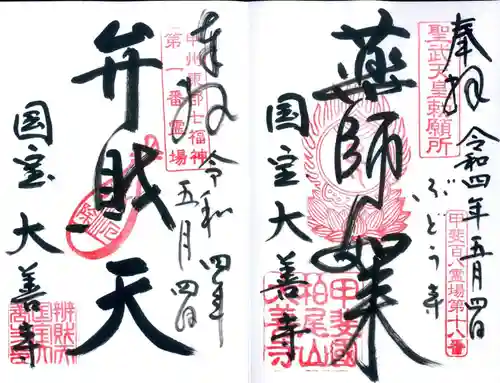 奉拝
聖武天皇勅願所
令和四年五月四日
ぶどう寺
甲斐百八霊場第十八番
薬師如来
国宝大善寺
甲斐国
柏尾山
大善寺
奉拝
甲州東郡七福神
第一番霊場
令和四年五月四日
弁財天
国宝大善寺